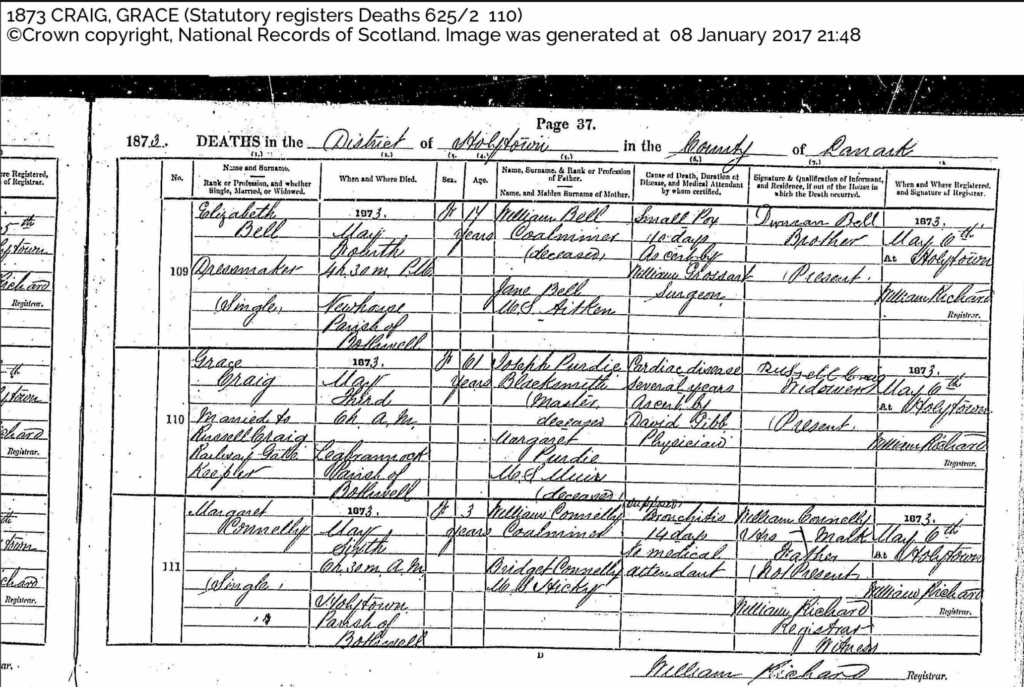 1873 CRAIG, GRACE (Statutory registers Deaths 625/2 110)
©Crown copyright, National Records of Scotland. Image was generated at 08 January 2017 21:48
Page 37.
1873. DEATHS in the District of Holytown in the County of Lanark
(1.) (2.) (3.) (4.) (5.) (6.) (7.)
No.
Name and Surname.
Rank or Profession, and whether Single, Married, or Widowed.
When and Where Died.
Sex.
Age.
Name, Surname, & Rank or Profession of Father.
Name, and Maiden Surname of Mother.
Cause of Death, Duration of Disease, and Medical Attendant by whom certified.
Signature & Qualification of Informant, and Residence, if out of the House in which the Death occurred.
When and Where Registered, and Signature of Registrar.
109
Elizabeth
Bell
Dressmaker
(Single)
1873
May
Fourth
4h. 30m. P.M.
Newhouse
Parish of
Bothwell
F
17
Years
William Bell
Coalminer
(deceased)
Jane Bell
M.S. Aitken
Small Pox
10 days
As cert by
William Grossart
Surgeon
Duncan Bell
Brother
(Present)
1873.
May 6th
At Holytown
William Richard
Registrar.
110
Grace
Craig
Married to
Russell Craig
Railway Gate
Keeper
1873.
May
Third
6h. A.M.
Legbrannock
Parish of
Bothwell
F
61
Years
Joseph Purdie
Blacksmith
(Master)
deceased
Margaret
Purdie
M.S. Muir
(deceased)
Cardiac disease
Several years
As cert by
David Gibb
Physician
Russell Craig
Widower
(Present)
1873.
May 6th
At Holytown
William Richard
Registrar.
111
Margaret
Connelly
(Single)
1873.
May
Sixth
6h. 30m. A.M.
Holytown
Parish of
Bothwell
F
3
years
William Connelly
Coalminer
Bridget Connelly
M.S. Hicky
Supposed
Bronchitis
14 days
No medical
attendant
William Connelly
His Mark
Father
(Not Present)
William Richard
Registrar
Witness
1873.
May 6th
At Holytown
William Richard
Registrar.
D
William Richard Registrar.